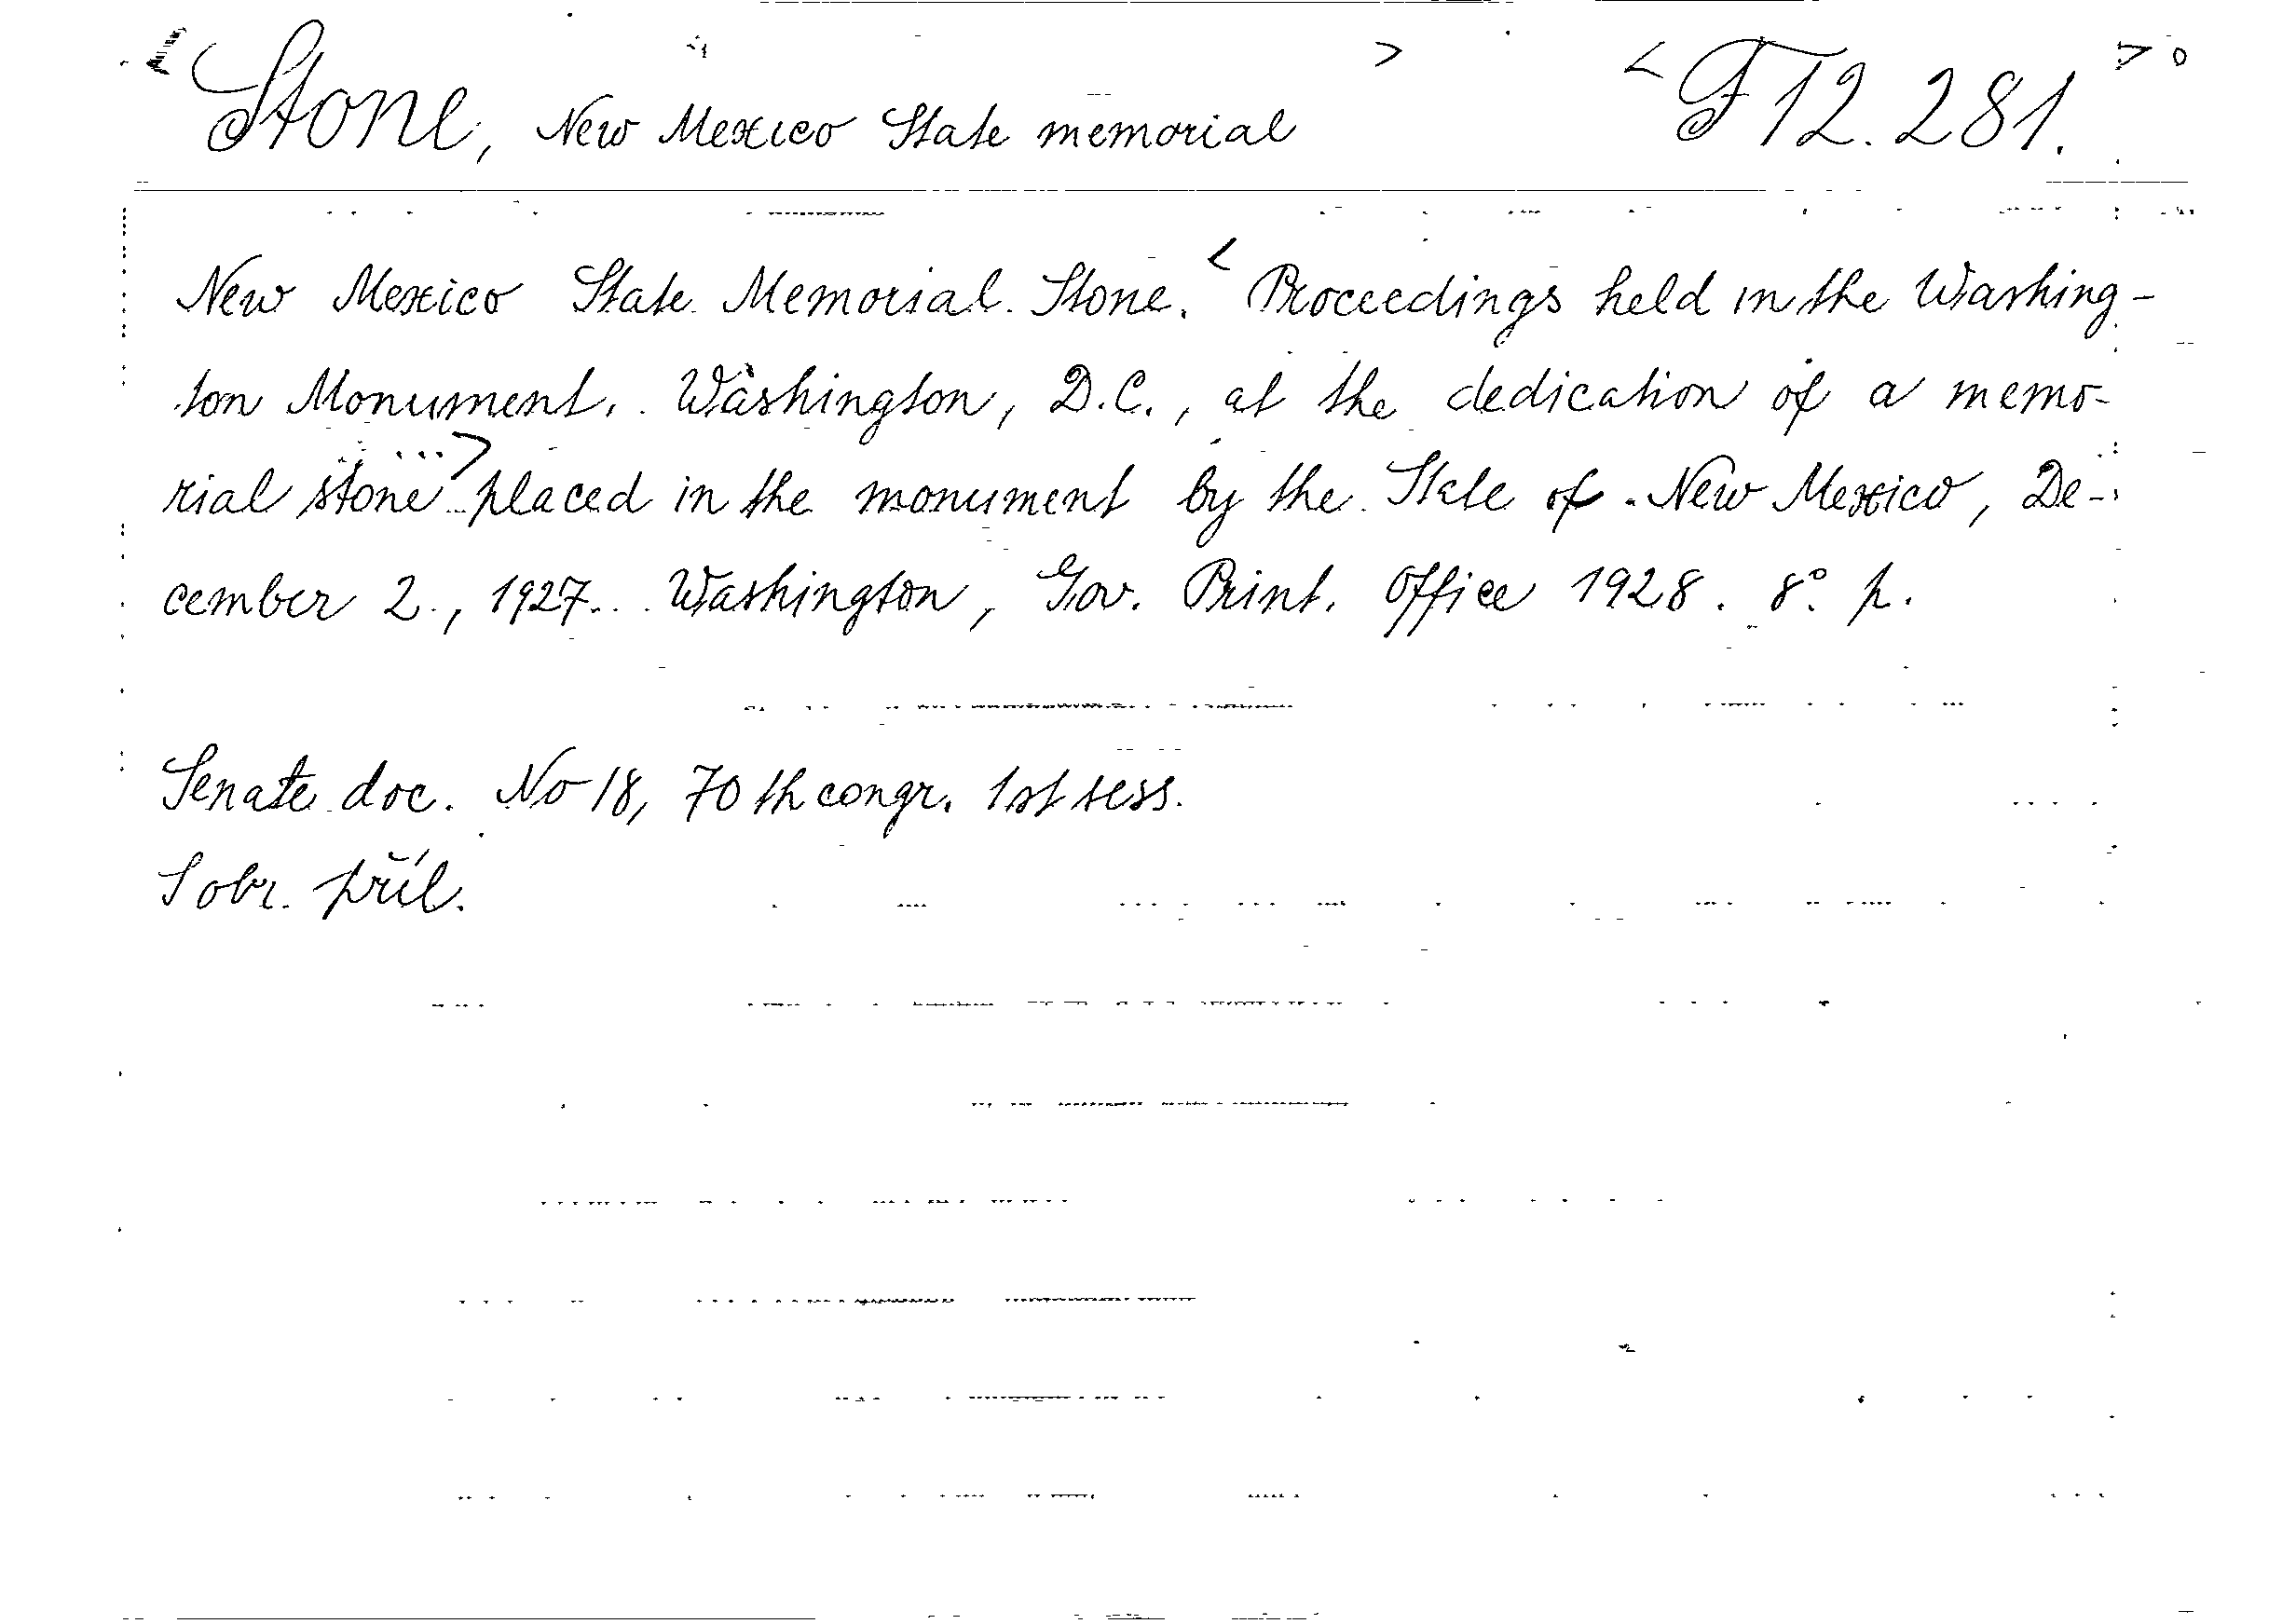 <Stone, New Mexico State memorial> <F 12.281.>
New Mexico State Memorial Stone. <Proceedings held in the Washing-
ton Monument. Washington, D.C., at the dedication of a memo-
rial stone ...> placed in the monument by the State of New Mexico, De-
cember 2., 1927... Washington, Gov. Print. Office 1928. 8° p.
Senate doc. No 18, 70th congr. 1st sess.
S obr. příl.